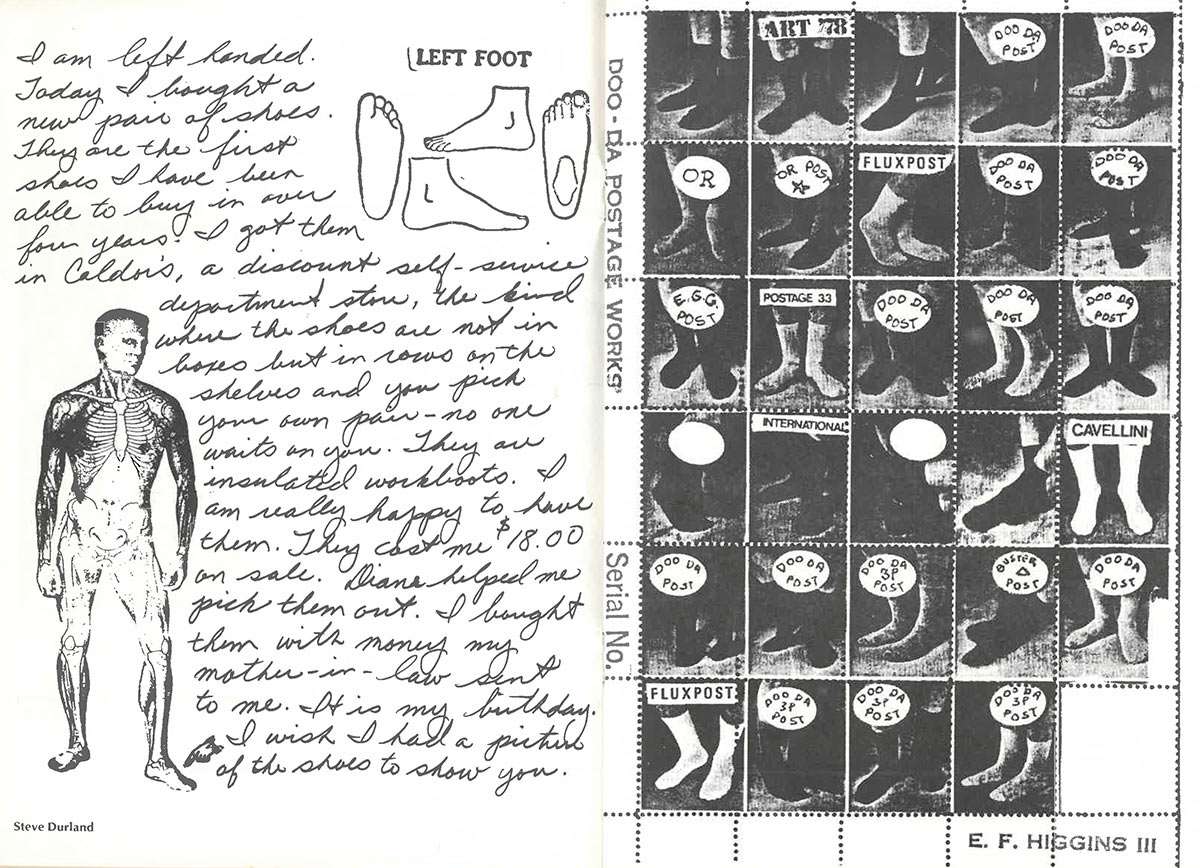 I am left handed.
Today I bought a
new pair of shoes.
They are the first
shoes I have been
able to buy in over
four years. I got them
in Caldor's, a discount self-service
department store, the kind
where the shoes are not in
boxes but in rows on the
shelves and you pick
your own pair - no one
waits on you. They are
insulated workboots. I
am really happy to have
them. They cost me $18.00
on sale. Diane helped me
pick them out. I bought
them with money my
mother-in-law sent
to me. It is my birthday.
I wish I had a picture
of the shoes to show you.
LEFT FOOT
J
L
Steve Durland
DOO-DA POSTAGE WORKS
Serial No.
ART '78
DOO DA
POST
DOO DA
POST
OR
OR POST
FLUXPOST
DOO DA
POST
DOO DA
POST
E.G.G.
POST
POSTAGE 33
DOO DA
POST
DOO DA
POST
DOO DA
POST
INTERNATIONAL
CAVELLINI
DOO DA
POST
DOO DA
POST
DOO DA
3P
POST
BUSTER
POST
DOO DA
POST
FLUXPOST
DOO DA
3P
POST
DOO DA
3P
POST
DOO DA
3P
POST
E. F. HIGGINS III